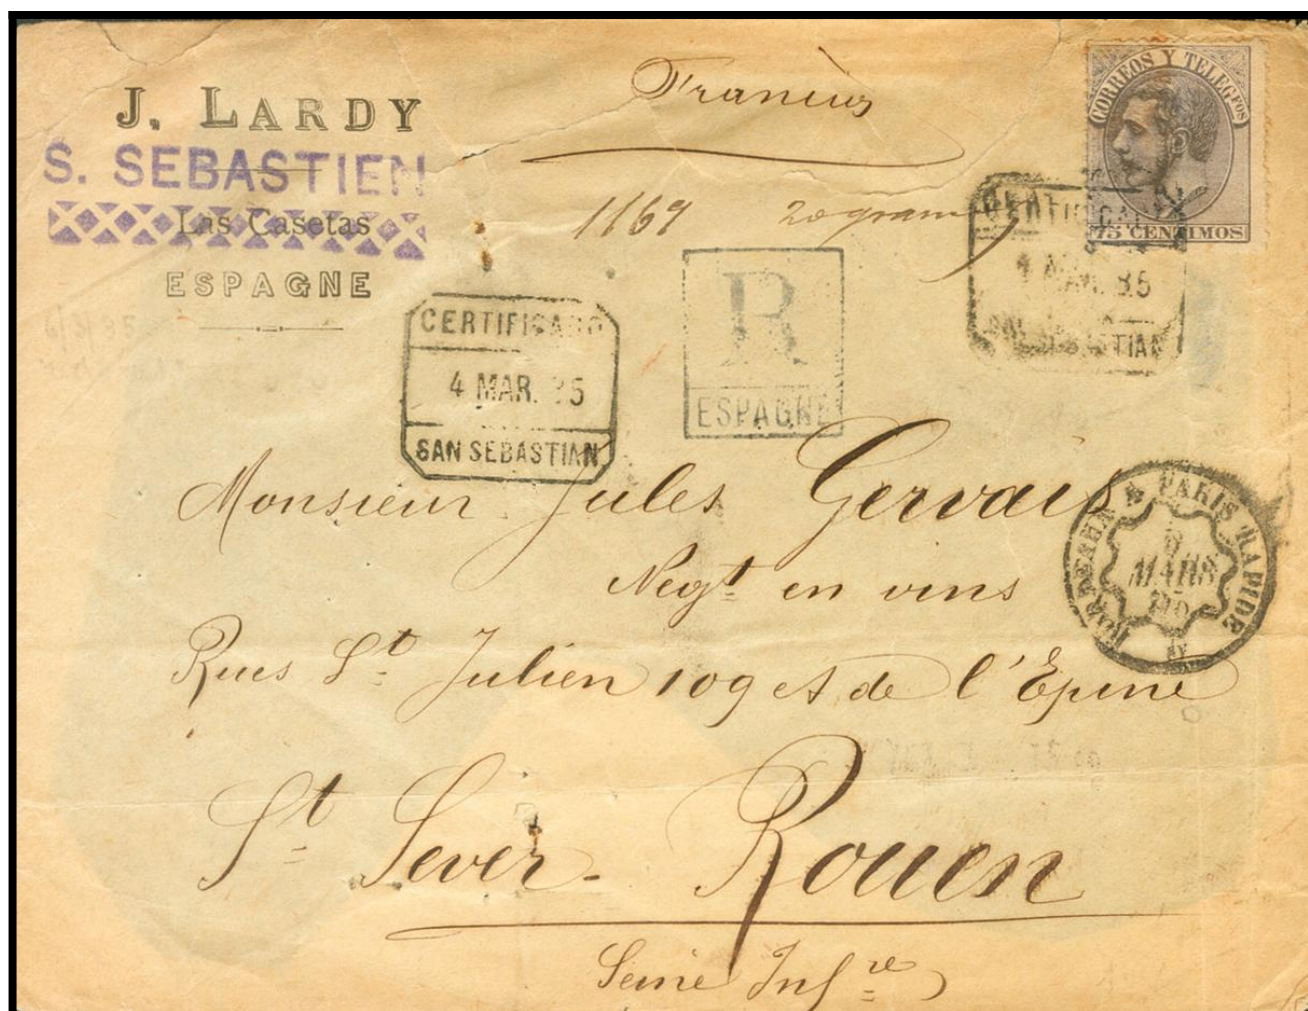 J. LARDY
S. SEBASTIEN
Las Casetas
ESPAGNE
Francia
CORREOS Y TELEGFOS
75 CENTIMOS
1169 20 gram
CERTIFICADO
4 MAR. 85
SAN SEBASTIAN
R
ESPAGNE
CERTIFICADO
4 MAR. 85
SAN SEBASTIAN
BORDEAUX A PARIS RAPIDE
MARS
Monsieur Jules Gervais
Negt en vins
Rues St Julien 109 et de l'Epine
St Sever - Rouen
Seine Infre